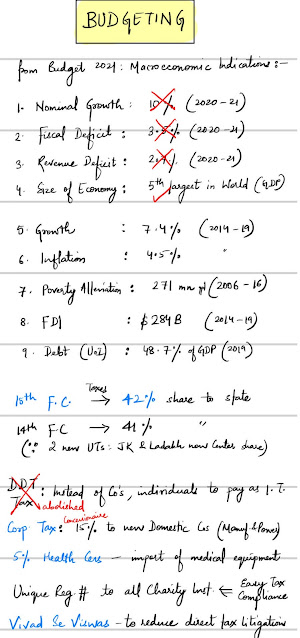 BUDGETING
from Budget 2021: Macroeconomic Indications:-
1. Nominal Growth: 10% (2020-21)
2. Fiscal Deficit: (2020-21)
3. Revenue Deficit: (2020-21)
4. Size of Economy: 5th largest in World (GDP)
5. Growth : 7.4% (2014-19)
6. Inflation : 4.5% "
7. Poverty Alleviation : 271 mn (2006-16)
8. FDI : $284B (2014-19)
9. Debt (UoI) : 48.7% of GDP (2019)
15th F.C. Taxes → 42% share to state
14th F.C → 41% "
(∵ 2 new UTs: JK & Ladakh now Center share)
DDT Tax abolished : Instead of Co's, individuals to pay as I.T.
Concessionaire
Corp Tax: 15% to new Domestic Cos (Manuf + Power)
5% Health Cess - import of medical equipment
Unique Reg # to all Charity Inst. ⇐ Easy Tax Compliance
Vivad Se Viswas - to reduce direct tax litigations